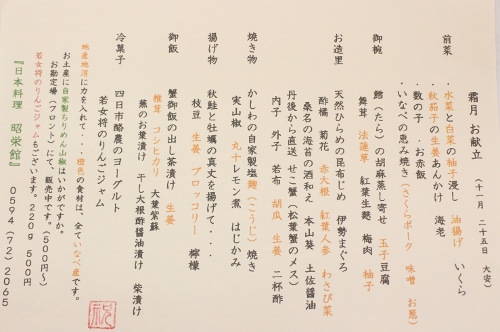 霜月 お献立 (十一月 二十五日 大安)
前菜 ・水菜と白菜の柚子浸し 油揚げ いくら
・秋茄子の生姜あんかけ 海老
・数の子 ・お赤飯
・いなべの恵み焼き(さくらポーク 味噌 お葱)
御椀 鱈(たら)の胡麻蒸し寄せ 玉子豆腐
舞茸 法蓮草 紅葉生麩 梅肉 柚子
お造里 天然ひらめの昆布じめ 伊勢まぐろ
酢橘 菊花 赤大根 紅葉人参 わさび菜
桑名の海苔の酒和え 本山葵 土佐醤油
丹後から直送 せこ蟹(松葉蟹のメス)
内子 外子 若布 胡瓜 生姜 二杯酢
焼き物 かしわの自家製塩麹(こうじ)焼き
実山椒 丸十レモン煮 はじかみ
揚げ物 秋鮭と牡蠣の真丈を揚げて・・
枝豆 生姜 ブロッコリー 檸檬
御飯 蟹御飯の出し茶漬け 生姜
椎茸 コシヒカリ 大葉紫蘇
蕪のお葉漬け 干し大根酢醤油漬け 柴漬け
冷菓子 四日市酪農のヨーグルト
若女将のりんごジャム
地産地消に力を入れて・・・橙色の食材は、全ていなべ産です。
お土産に自家製ちりめん山椒はいかがですか。
お勘定場(フロント)にて、販売中です。(500円~)
若女将のりんごジャムもございます。220g 500円
『日本料理 昭栄館』 0594(72)2065